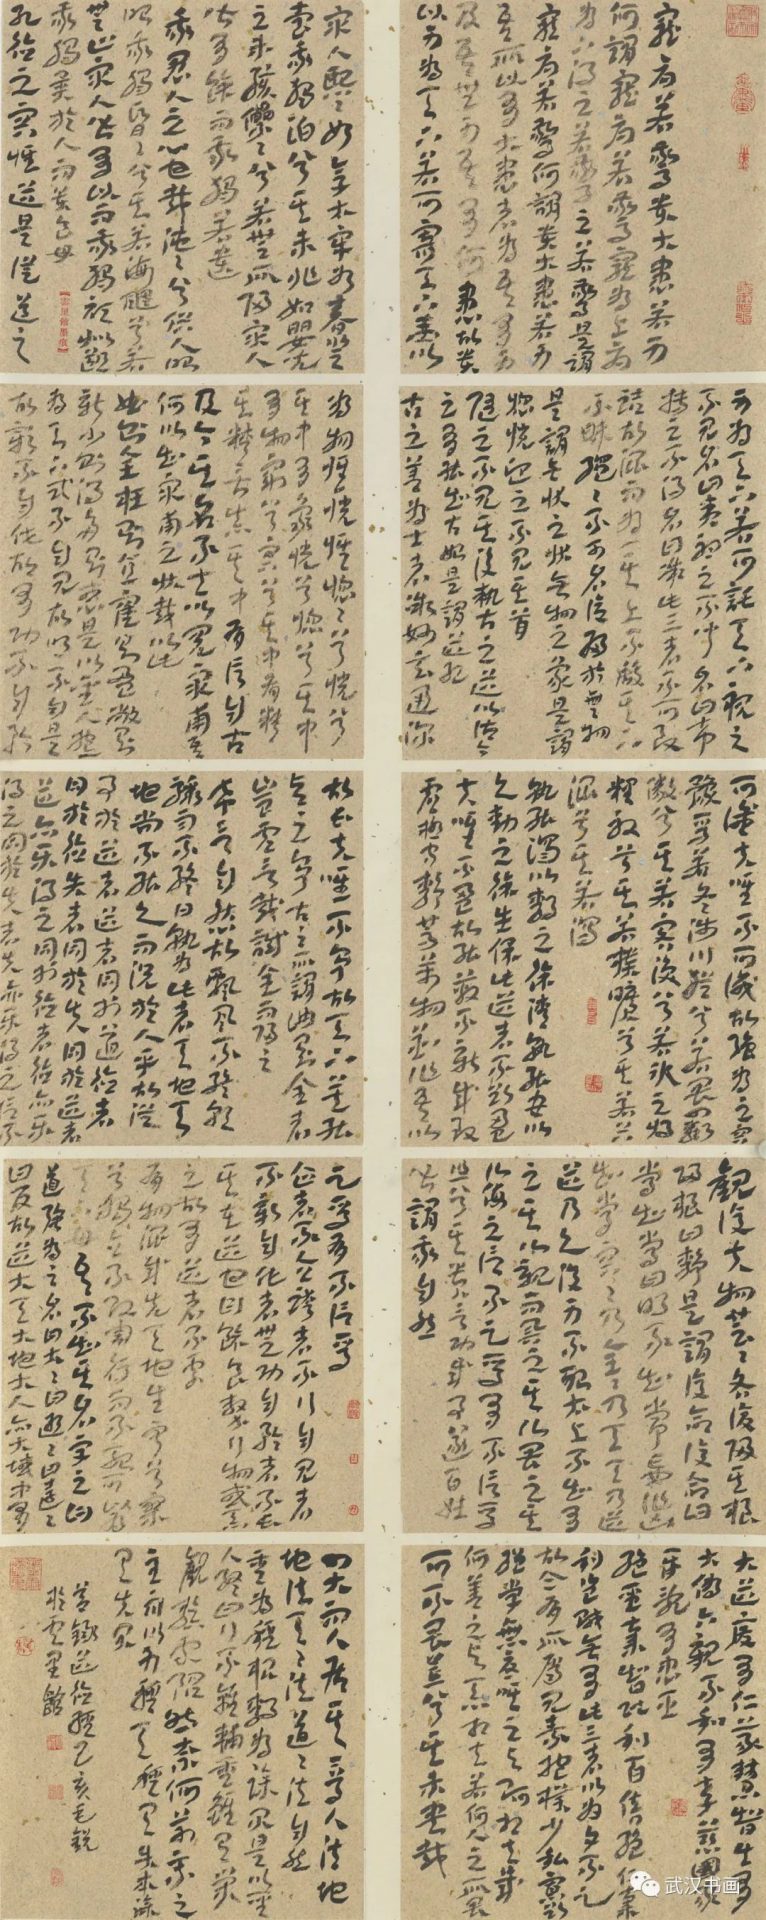 寵辱若驚貴大患若身
何謂寵辱若驚寵為上辱
為下得之若驚失之若驚是謂
寵辱若驚何謂貴大患若身
吾所以有大患者為吾有身
及吾無身吾有何患故貴
以身為天下若可寄天下愛以
身為天下若可託天下視之
不見名曰夷聽之不聞名曰希
搏之不得名曰微此三者不可致
詰故混而為一其上不皦其下
不昧繩繩不可名復歸於無物
是謂無狀之狀無物之象是謂
惚恍迎之不見其首
隨之不見其後執古之道以御今
之有能知古始是謂道紀
古之善為士者微妙玄通深
不可識夫唯不可識故強為之容
豫兮若冬涉川猶兮若畏四鄰
儼兮其若容渙兮若冰之將
釋敦兮其若樸曠兮其若谷
混兮其若濁
孰能濁以靜之徐清孰能安以
久動之徐生保此道者不欲盈
夫唯不盈故能蔽不新成致
虛極守靜篤萬物並作吾以
觀復夫物芸芸各復歸其根
歸根曰靜是謂復命復命曰
常知常曰明不知常妄作凶
知常容容乃公公乃王王乃天天乃道
道乃久沒身不殆太上不知有
之其次親而譽之其次畏之其
次侮之信不足焉有不信焉
悠兮其貴言功成事遂百姓
皆謂我自然
大道廢有仁義慧智出有
大偽六親不和有孝慈國家
昏亂有忠臣
絕聖棄智民利百倍絕仁棄
利盜賊無有此三者以為文不足
故令有所屬見素抱樸少私寡欲
絕學無憂唯之與阿相去幾
何善之與惡相去若何人之所畏
不可不畏荒兮其未央哉
眾人熙熙如享太牢如春登
臺我獨泊兮其未兆如嬰兒
之未孩儽儽兮若無所歸眾人
皆有餘而我獨若遺
我愚人之心也哉沌沌兮俗人昭
昭我獨昏昏兮其若海飂兮若
無止眾人皆有以而我獨頑似鄙
我獨異於人而貴食母
孔德之容惟道是從道之
為物惟恍惟惚惚兮恍兮
其中有象恍兮惚兮其中
有物窈兮冥兮其中有精
其精甚真其中有信自古
及今其名不去以閱眾甫吾
何以知眾甫之狀哉以此
曲則全枉則直窪則盈敝則
新少則得多則惑是以聖人抱一
為天下式不自見故明不自是
故彰不自伐故有功不自矜
故長夫唯不爭故天下莫能
與之爭古之所謂曲則全者
豈虛言哉誠全而歸之
希言自然故飄風不終朝
驟雨不終日孰為此者天地天
地尚不能久而況於人乎故從
事於道者道者同於道德者
同於德失者同於失同於道者
道亦樂得之同於德者德亦樂
得之同於失者失亦樂得之信不
足焉有不信焉
企者不立跨者不行自見者
不彰自伐者無功自矜者不長
其在道也曰餘食贅行物或惡
之故有道者不處
有物混成先天地生寂兮寥
兮獨立不改周行而不殆可以為
天下母吾不知其名字之曰
道強為之名曰大大曰逝逝曰遠遠
曰反故道大天大地大人亦大域中有
四大而人居其一焉人法地
地法天天法道道法自然
重為輕根靜為躁君是以聖
人終日行不離輜重雖有榮
觀燕處超然奈何萬乘之
主而以身輕天下輕則失本躁
則失君
節錄道德經己亥毛銳
於雲里館
武汉书画